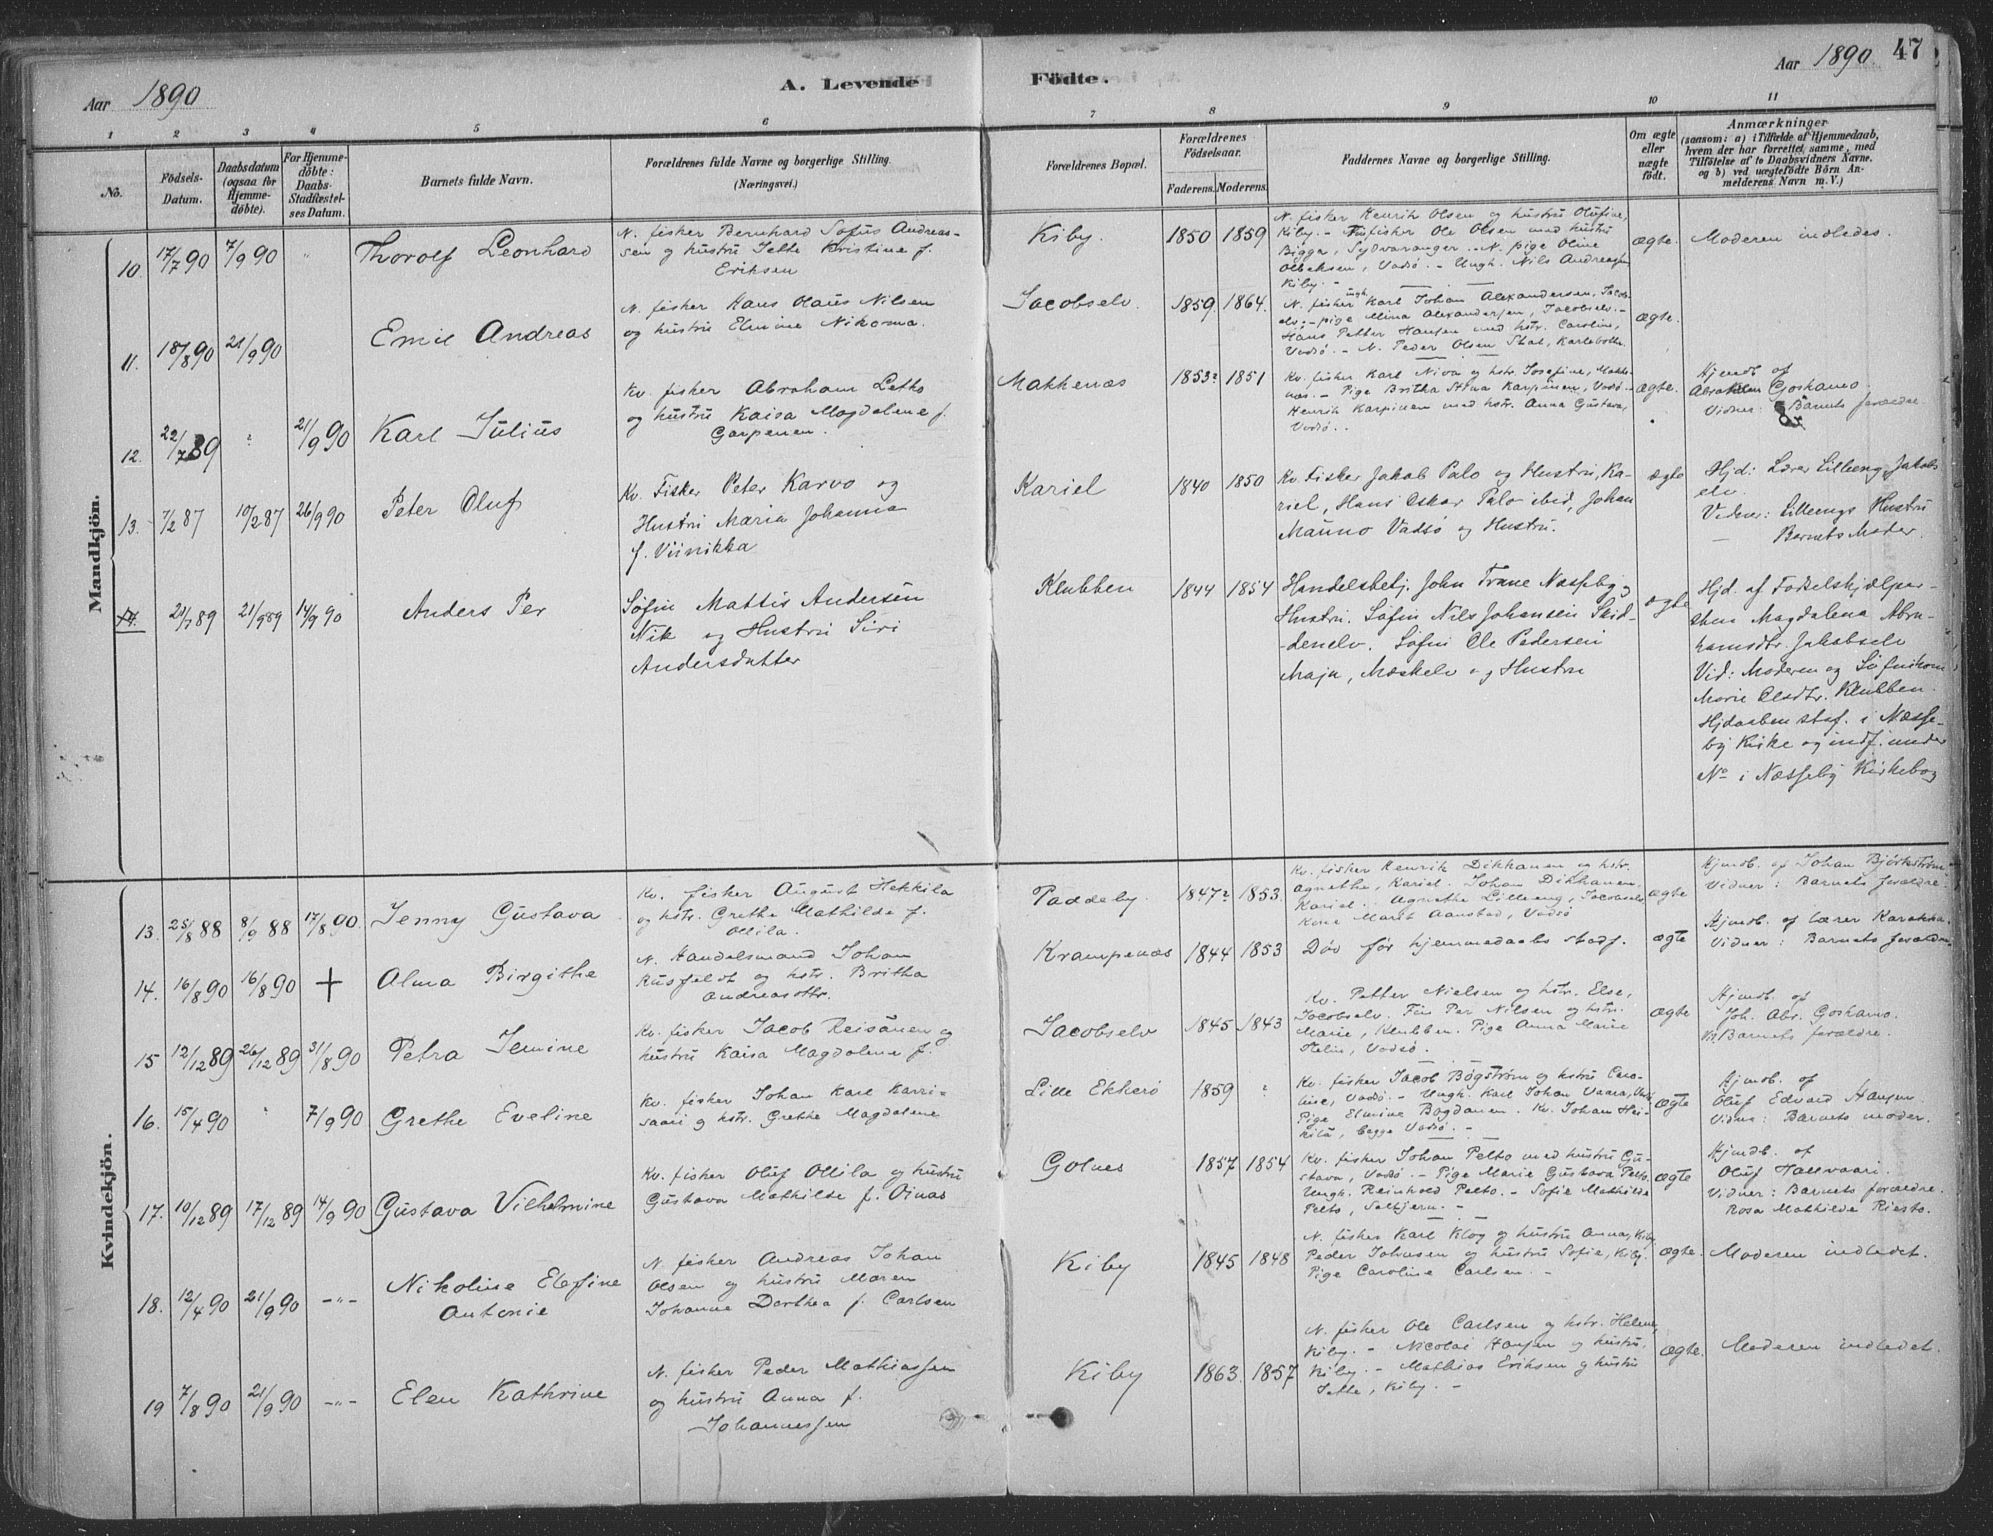 Aar 1890
A. Levende
Födte.
Aar 1890
47
1 2 3 4 5 6 7 8 9 10 11
No.
Födsels-Datum.
Daabsdatum (ogsaa for Hjemmedöbte).
For Hjemmedöbte: Daabs-Stadfæstelses Datum.
Barnets fulde Navn.
Forældrenes fulde Navne og borgerlige Stilling.
(Næringsvei.)
Forældrenes Bopæl.
Forældrenes Födselsaar.
Faderens. Moderens.
Faddernes Navne og borgerlige Stilling.
Om ægte eller uægte födt.
Anmærkninger
(saasom: a) i Tilfælde af Hjemmedaab,
hvem der har forrettet samme, med
Tilföielse af to Daabsvidners Navne.
og b) ved uægtefödte Börn An-
melderens Navn m. V.)
Mandkjön.
10. 17/7 90 7/9 90 " Thorolf Leonhard
N. fisker Bernhard Sofus Andreas-
sen og hustru Jette Kristine f.
Eriksen
Kiby. 1850 1859
N. fisker Henrik Olsen og hustru Olufine,
Kiby. - fisker Ole Olsen med hustru
Bigga, Sydvaranger. - N. pige Oline
Olbeksen, Vadsö. - Ungk. Nils Andreassen
Kiby. -
ægte. Moderen indledes.
11. 18/8 90 21/9 90 Emil Andreas
N. fisker Hans Olaus Nilsen
og hustru Elmine Nikoma.
Jacobselv 1859. 1864.
N. fisker ungk. Karl Johan Alexandersen, Jacob-
elv; - pige Mina Alexandersen, Jacobselv. -
Hans Petter Hansen med hstr. Caroline,
Vadsö. - N. Peder Olsen Stal, Karlebotn.
ægte.
12. 22/7 89 " 21/9 90 Karl Julius
Kv. fisker Abraham Letto
og hustru Kaisa Magdalene f.
Garpenen.
Makkenæs 1853? 1851
Kv. fisker Karl Niva og hstr. Josefine, Makke-
næs. - Pige Britha Stina Karpinen, Vadsö. -
Henrik Karpinen med hstr. Anna Gustava,
Vadsö. .
ægte. Hjmdb. af
Abraham Goshamo.
Vidner: Barnets forældre.
13. 7/2 87 10/2 87 26/9 90 Peter Oluf
Kv. Fisker Peter Karvo og
Hustru Maria Johanna
f. Viinikka
Kariel 1840 1850
Kv. Fisker Jakob Palo og Hustru, Ka-
riel, Hans Oskar Palo ibid, Johan
Mauno Vadsö og Hustru.
ægte Hjd: Lærer Lilleeng, Jakobs
elv.
Vidner: Lilleengs Hustru
— Barnets Moder.
14. 21/ 89 21/9 89 14/9 90 Anders Per
Söfin Mattis Andersen
Nik og Hustru Siri
Andersdatter
Klubben 1844 1854
Handelsbetj. John Trane Næsseby og
Hustru. Söfin Nils Johansen Skid-
denelv. Söfin Ole Pedersen
Maja, Mæskelv og Hustru
ægte Hjd. af Födselshjælper-
sken Magdalena Abra-
hamsdtr. Jakobselv
Vid: Moderen og Söfinkone
Marie Olsdtr. Klubben.
Hjdaaben staf. i Næsse-
by Kirke og indf. under
No i Næsseby Kirkebog
Kvindekjön.
13. 25/8 88 8/9 88 17/8 90. Jenny Gustava
Kv. fisker August Hekkila
og hstr. Grethe Mathilde f.
Ollila.
Paddeby. 1847? 1853.
Kv. fisker Henrik Dikkanen og hstr.
Agnethe, Kariel. Johan Dikkanen,
Kariel. Agnethe Lilleeng, Jacobselv
Kone Marit Aanstad, Vadsö
ægte Hjmdb. af Johan Björkström.
Vidner: Barnets forældre.
14. 16/8 90 16/8 90 + Alma Birgithe
N. Handelsmand Johan
Kusfeldt og hstr. Britha
Andreasdtr.
Krampenæs 1844 1853
Död för hjemmedaabs stadf. ægte
Hjmdb. af lærer Karakka.
Vidner: Barnets forældre.
15 12/12 89 26/12 89 31/8 90 Petra Jemine
Kv. fisker Jacob Reisänen og
hustru Kaisa Magdalene f.
Jacobselv 1845 1843
Kv. Petter Nielsen og hstr. Else,
Jacobselv. Fin Per Nilsen og hstr.
Marie, Klubben. Pige Anna Marie
Helin, Vadsö.
ægte Hjmdb. af
Joh. Abr. Goshamo.
V. Barnets forældre.
16. 15/4 90 " 7/9 90 Grethe Eveline
Kv. fisker Johan Karl Karri-
saari og hstr. Grethe Magdalene
Lille Ekkerö 1859 "
Kv. fisker Jacob Bögström og hstru Caro-
line, Vadsö - Ungk. Karl Johan Vaara, Vadsö
Pige Elmine Bogdanen. Kv. Johan Hei-
kila, begge Vadsö. -
ægte Hjmdb. af
Oluf Edvard Hansen.
Vidner: Barnets moder.
17. 10/12 89 17/12 89 14/9 90 Gustava Vilhelmine
Kv. fisker Oluf Ollila og hustru
Gustava Mathilde f. Oinas
Golnes 1857 1854
Kv. fisker Johan Pelto med hustru Gu-
stava, Vadsö. - Pige Marie Gustava Pelto.
Ungk. Reinhold Pelto. - Sofie Mathilde
Pelto, Saltjern. -
ægte Hjmdb. af
Oluf Hallvaari.
Vidner: Barnets forældre.
Rosa Mathilde Riesto.
18. 12/4 90 21/9 90 -"- Nikoline Elefine
Antonie
N. fisker Andreas Johan
Olsen og hustru Maren
Johanne Dorthea f. Carlsen
Kiby 1845 1848
N. fisker Karl Klog og hustru Anna, Kiby
Peder Johnsen og hustru Sofie, Kiby.
Pige Caroline Carlsen. -
ægte. Moderen indledet.
19 7/8 90 21/9 90 -"- Elen Kathrine
N. fisker Peder Mathiassen
og hustru Anna f.
Johannessen
Kiby 1863. 1857
N. fisker Ole Carlsen og hstr. Helene,
Kiby. - Nicolai Hansen og hustru,
Kiby. - Mathias Eriksen og hustru
Jette, Kiby. -
ægte. Moderen indledet.